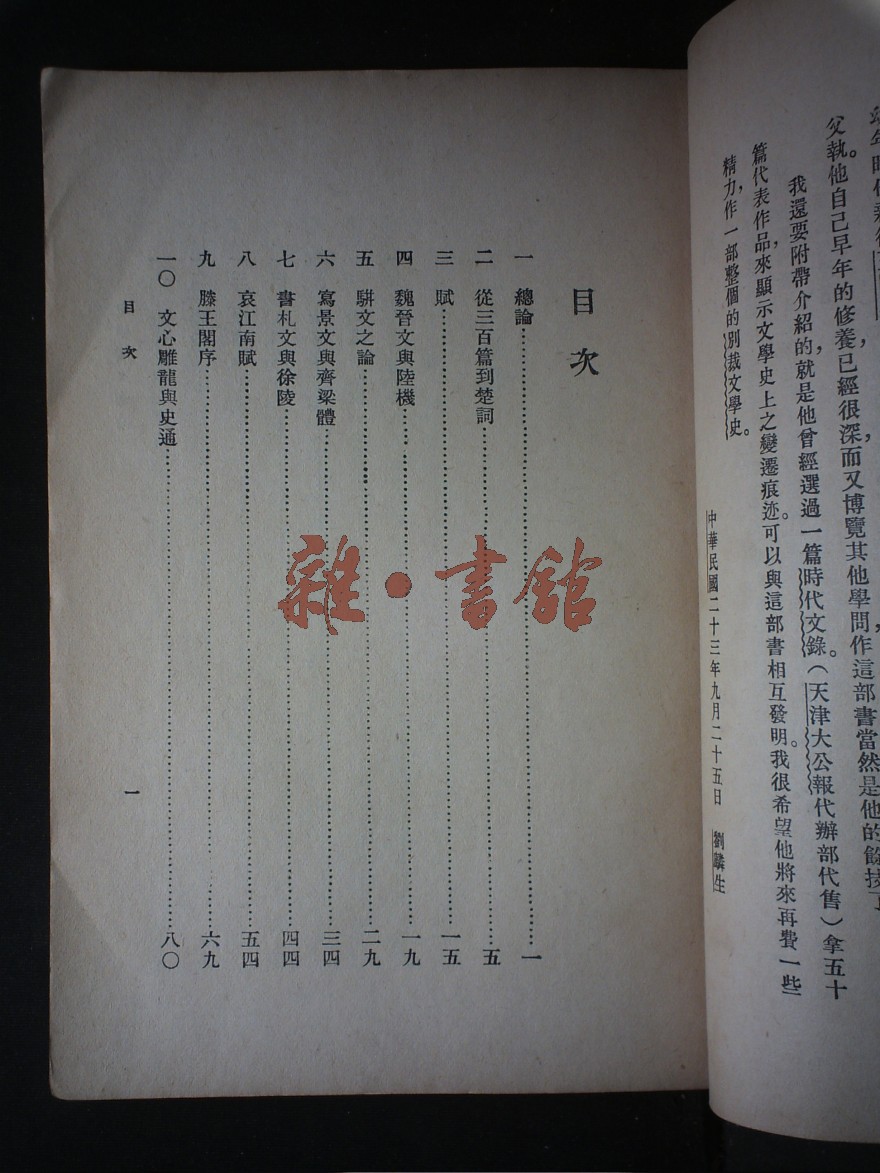 父執。他自己早年的修養已經很深而又博覽其他學問,作這部書當然是他的餘技了
我還要附帶介紹的,就是他曾經選過一篇時代文錄。(天津大公報代辦部代售)拿五十
篇代表作品,來顯示文學史上之變遷痕迹。可以與這部書相互發明。我很希望他將來再費一些
精力,作一部整個的別裁文學史。
中華民國二十三年九月二十五日 劉麟生
目次
一 總論……一
二 從三百篇到楚詞……五
三 賦……一五
四 魏晉文與陸機……一九
五 駢文之論……二九
六 寫景文與齊梁體……三四
七 書札文與徐陵……四四
八 哀江南賦……五四
九 滕王閣序……六九
一〇 文心雕龍與史通……八〇
目次
一
雜·書館